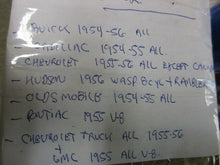 - BUICK 1954-56 ALL
- CADILLAC 1954-55 ALL
- CHEVROLET 1955-56 ALL EXCEPT
- HUDSON 1956 WASP 8CYL + RAMBLER
- OLDSMOBILE 1954-55 ALL
- PONTIAC 1955 V-8
- CHEVROLET TRUCK ALL 1955-56
+
GMC 1955 ALL V-8